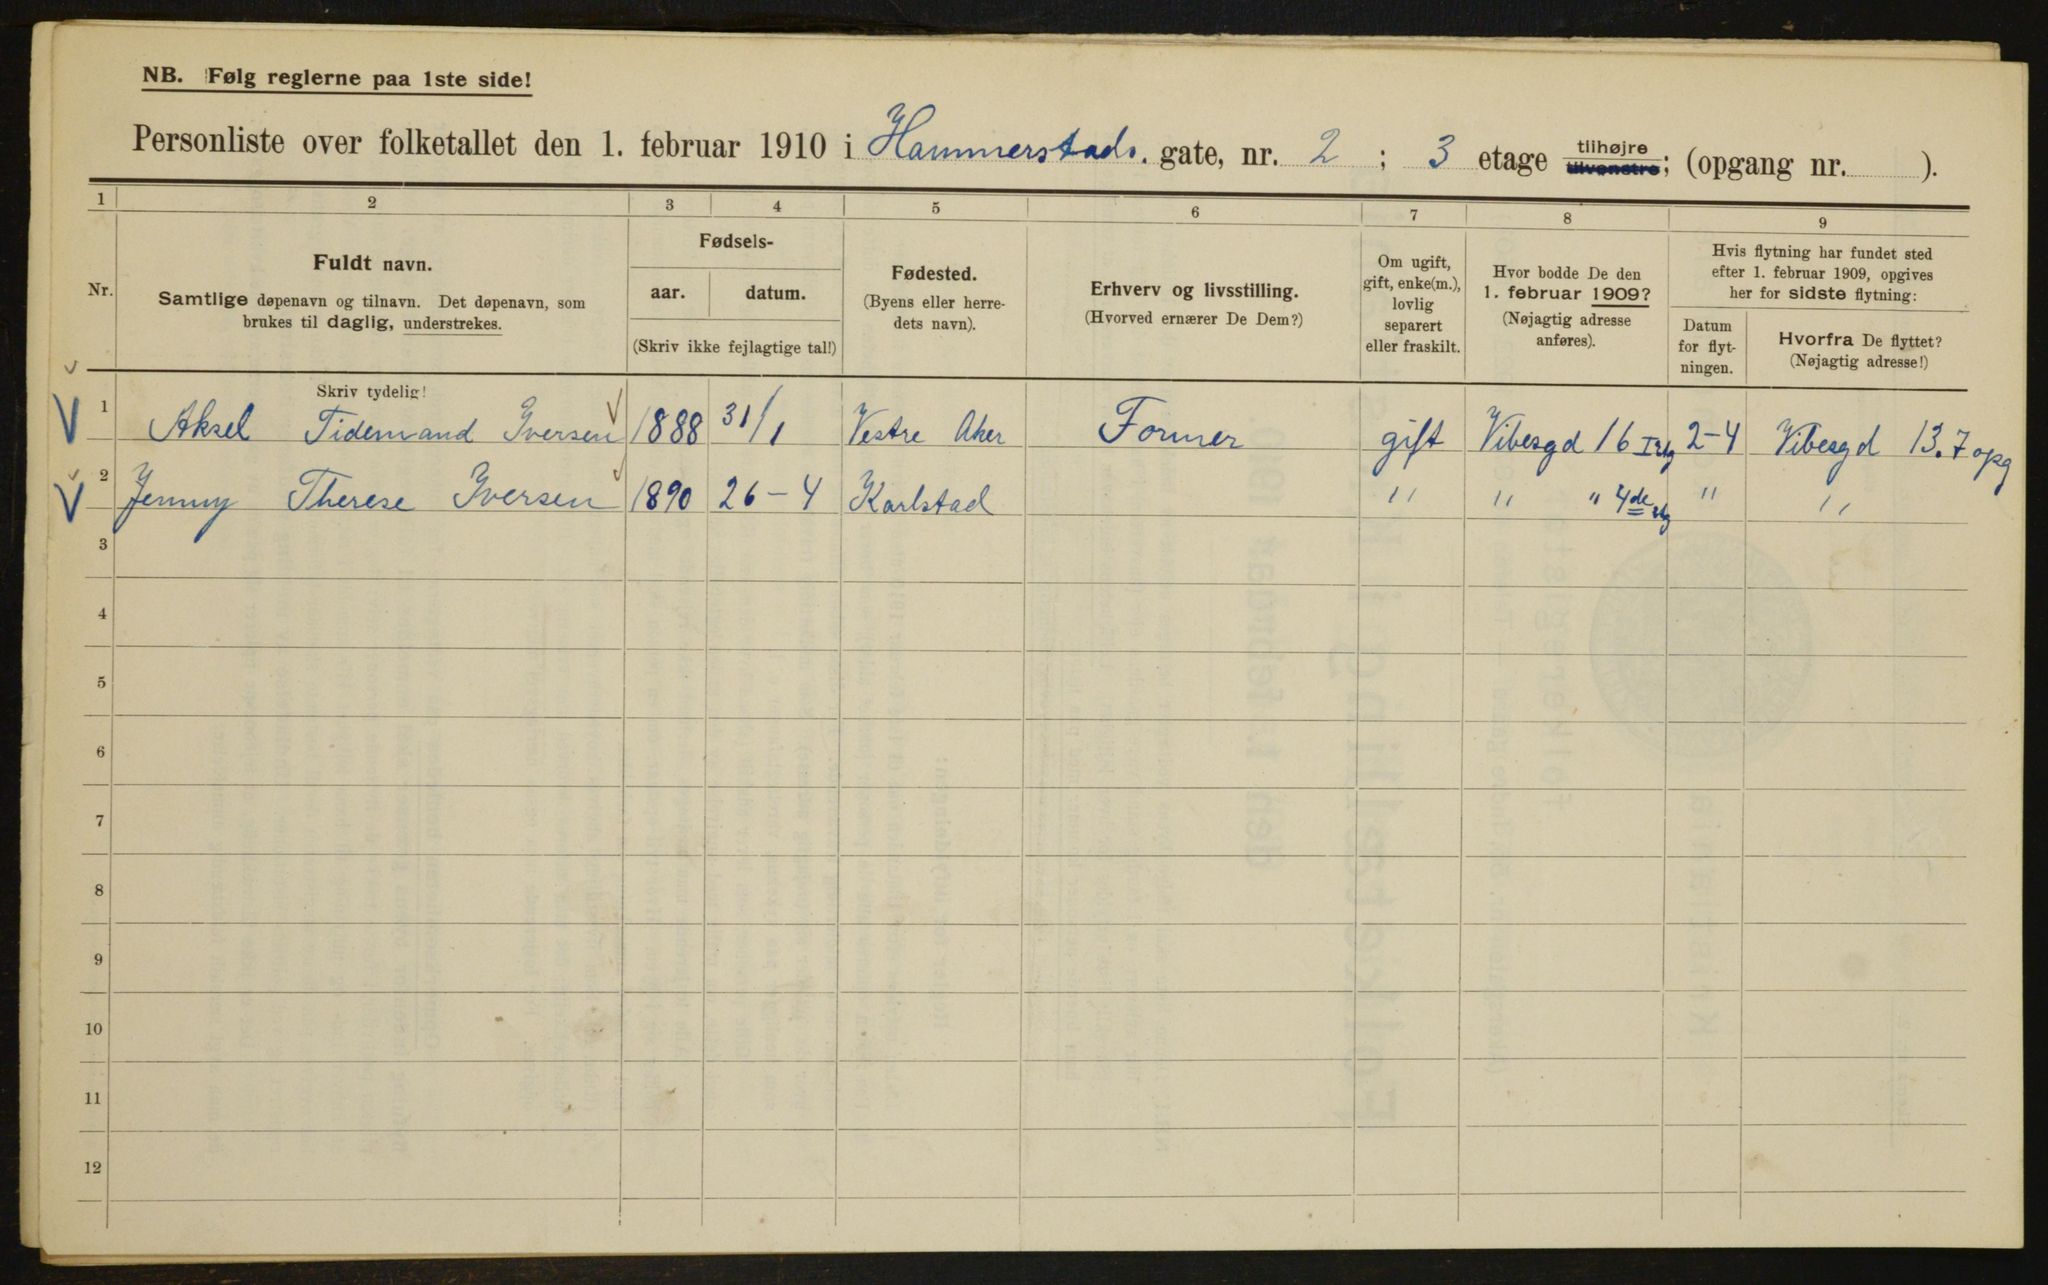 NB. Følg reglerne paa 1ste side!
Personliste over folketallet den 1. februar 1910 i Hammerstads. gate, nr. 2 ; 3 etage tilhøjre tilvenstre; (opgang nr. ).
1 2 3 4 5 6 7 8 9
Nr.
Fuldt navn.
Samtlige døpenavn og tilnavn. Det døpenavn, som
brukes til daglig, understrekes.
Skriv tydelig!
Fødsels-
aar. datum.
(Skriv ikke fejlagtige tal!)
Fødested.
(Byens eller herre-
dets navn).
Erhverv og livsstilling.
(Hvorved ernærer De Dem?)
Om ugift,
gift, enke(m.),
lovlig
separert
eller fraskilt.
Hvor bodde De den
1. februar 1909?
(Nøjagtig adresse
anføres).
Hvis flytning har fundet sted
efter 1. februar 1909, opgives
her for sidste flytning:
Datum
for flyt-
ningen.
Hvorfra De flyttet?
(Nøjagtig adresse!)
1 Aksel Tidemand Iversen 1888 31/1 Vestre Aker Former gift Vibesgd 16 2-4 Vibesgd 13. 7 opg
2 Jenny Therese Iversen 1890 26-4 Karlstad " " " 4de " "
3
4
5
6
7
8
9
10
11
12